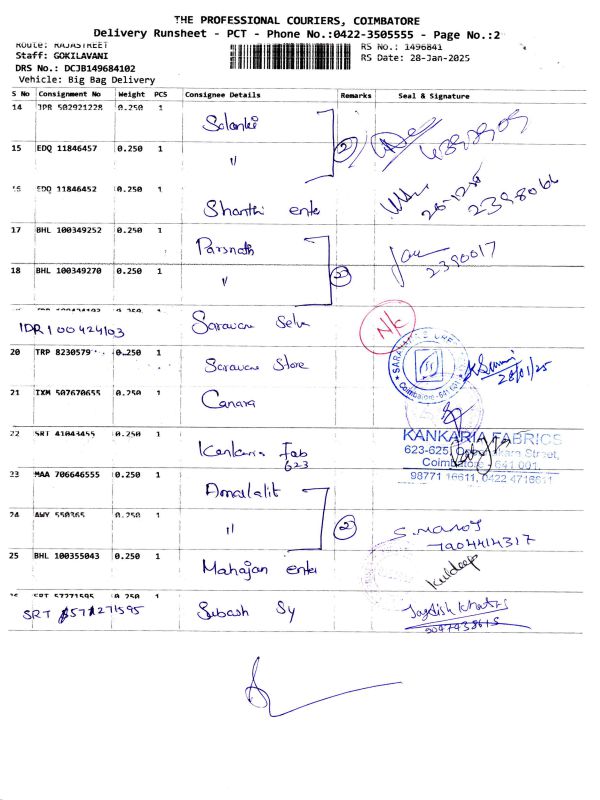 THE PROFESSIONAL COURIERS, COIMBATORE
Delivery Runsheet - PCT - Phone No.:0422-3505555 - Page No.:2
Route: RAJASTREET
RS No.: 1496841
Staff: GOKILAVANI
RS Date: 28-Jan-2025
DRS No.: DCJB149684102
Vehicle: Big Bag Delivery
S No Consignment No Weight PCS Consignee Details Remarks Seal & Signature
14 JPR 502921228 0.250 1 Solanki
15 EDQ 11846457 0.250 1 " 2
16 EDQ 11846452 0.250 1 Shanthi enter
17 BHL 100349252 0.250 1 Parsnath
18 BHL 100349270 0.250 1 " 2 2390017
IDR 100424103 Saravana Selva N/c
20 TRP 8230579 0.250 1 Saravana Store 28/01/25
21 TXM 507670655 0.250 1 Canara
22 SRT 41043455 0.250 1 Kankaria Fab 623
KANKARIA FABRICS
Coimbatore - 641 001.
98771 16611, 0422 4716611
23 MAA 706646555 0.250 1 Amarlalit
24 AWY 550365 0.250 1 " 2 S. Manoj
7904414317
25 BHL 100355043 0.250 1 Mahajan enter Kuldeep
26 SRT 57271595 0.250 1
SRT 571271595 Subash Sy Jagdish Khatri